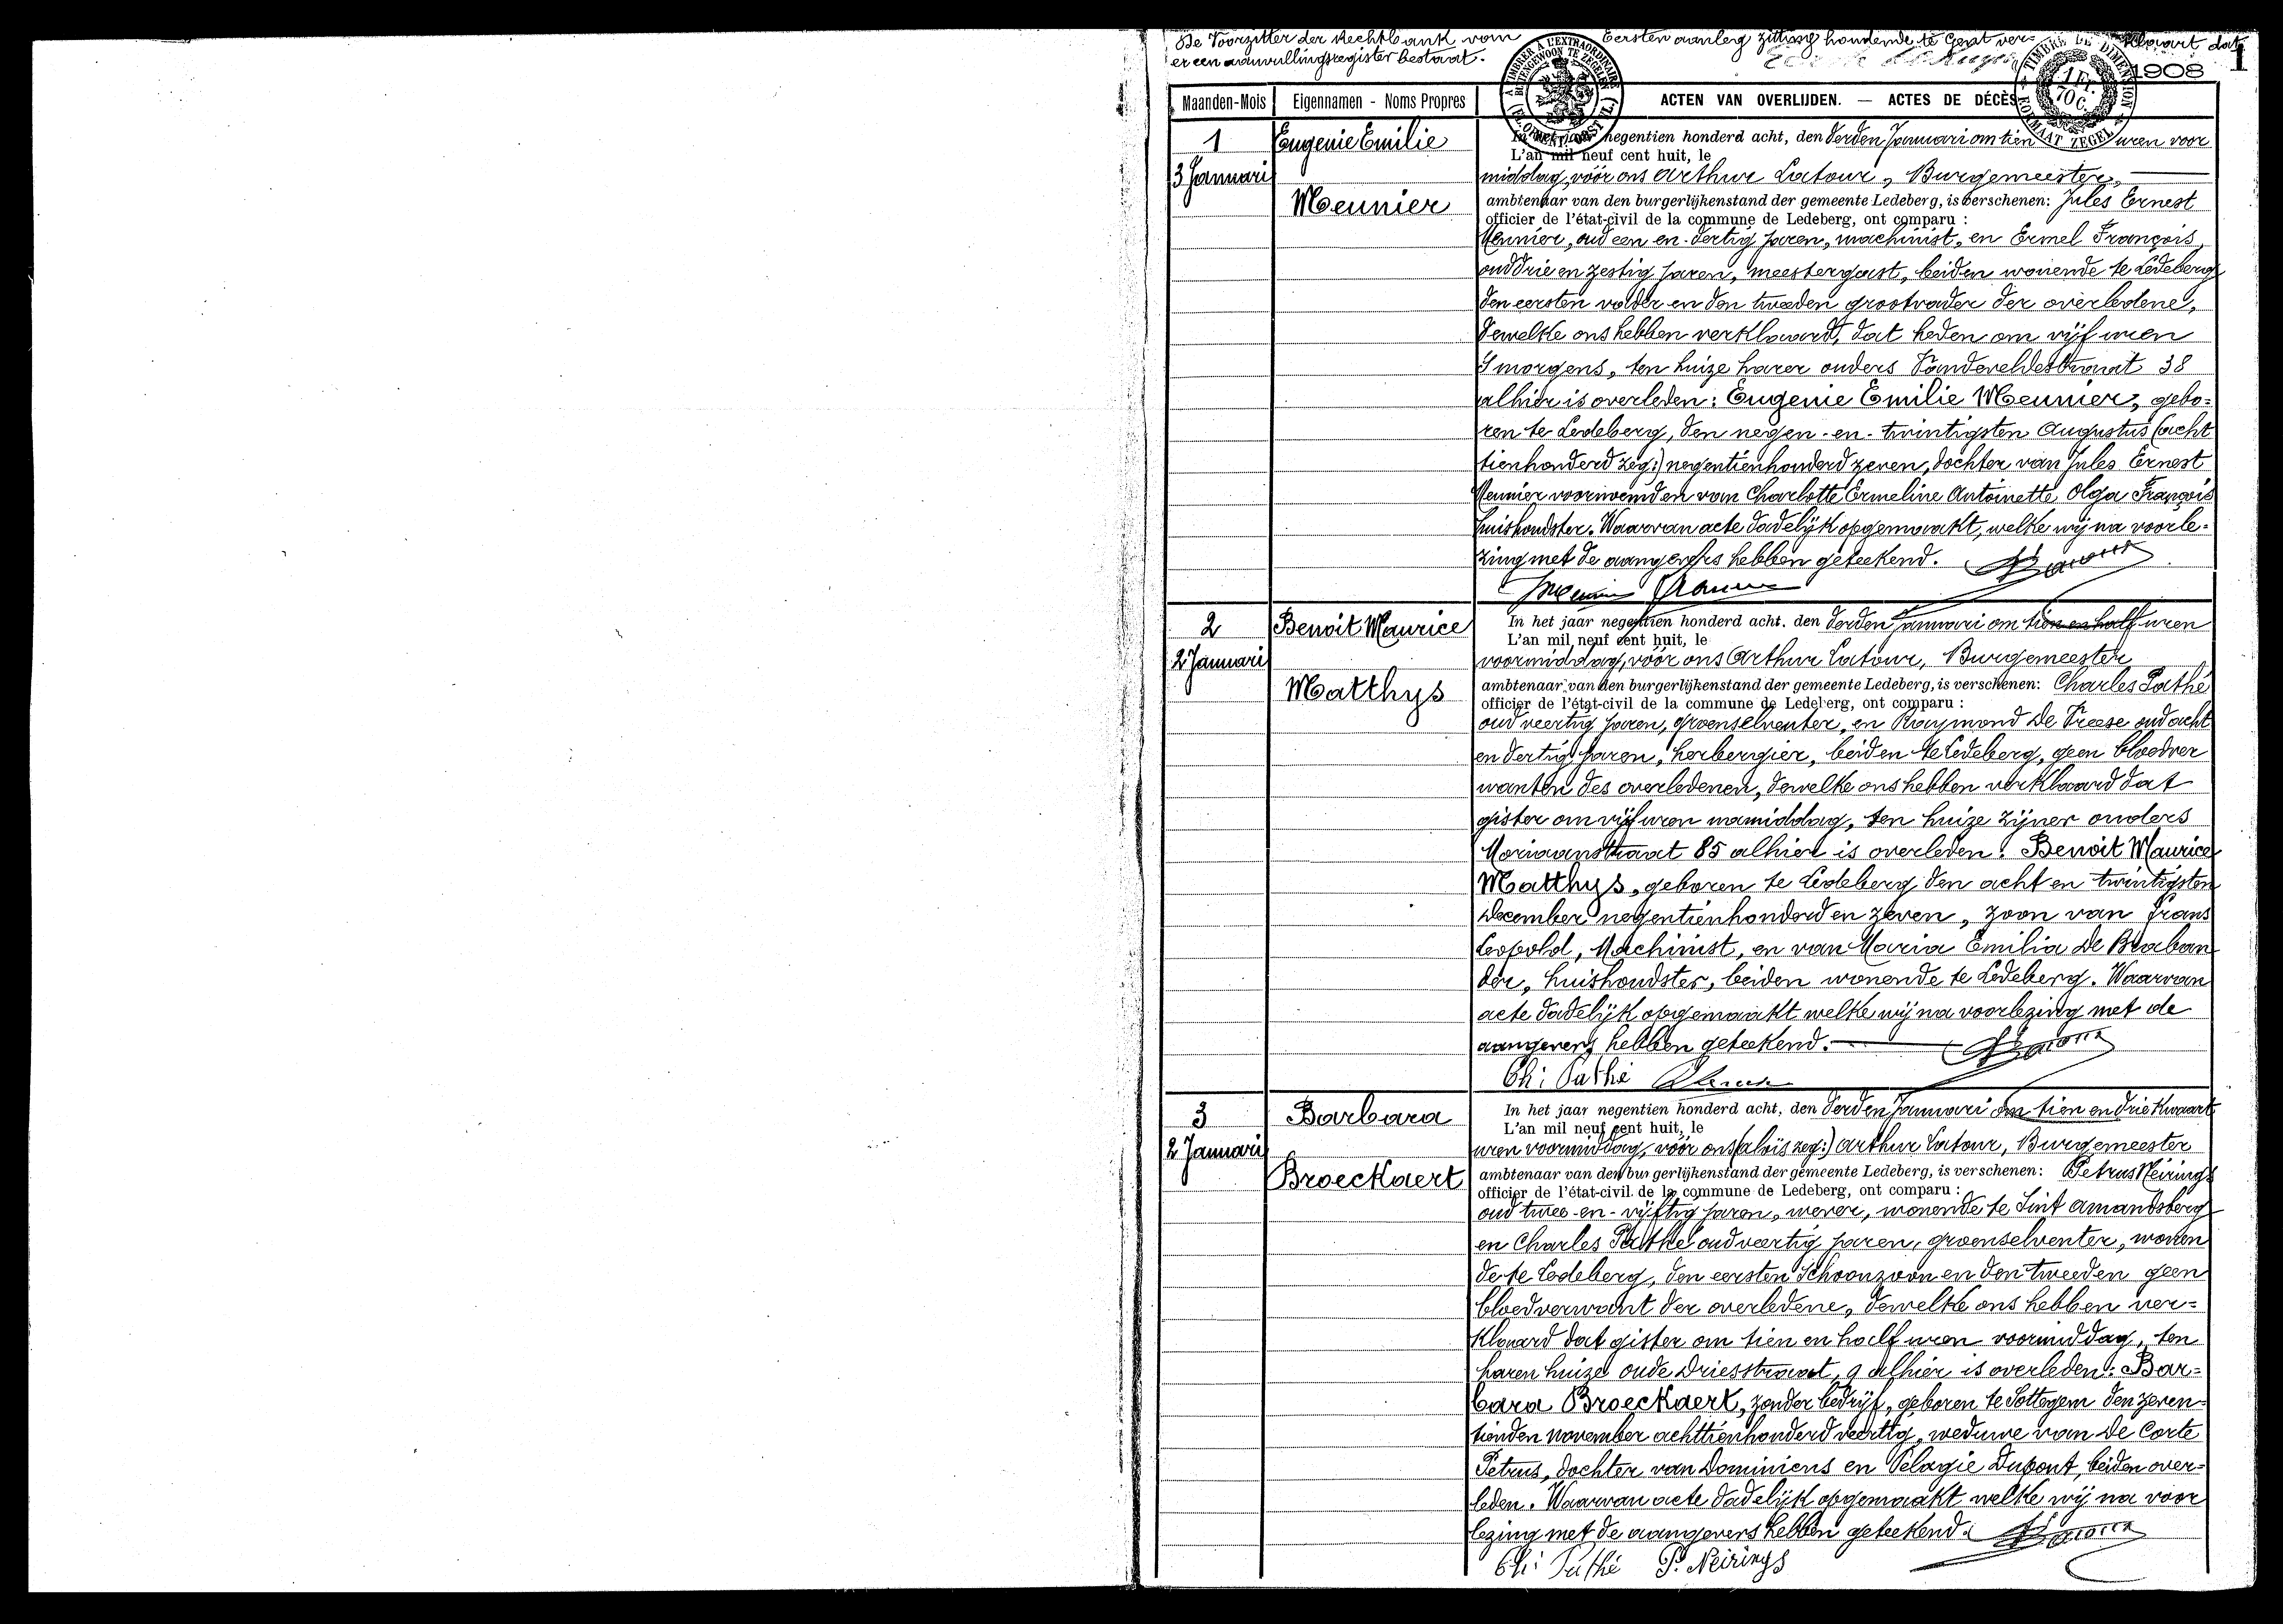 De Voorzitter der Rechtbank van Eersten aanleg zitting houdende te Gent ver= klaart dat
er een aanvullingsregister bestaat.
1
1908
A TIMBRER A L'EXTRAORDINAIRE
BUITENGEWOON TE ZEGELEN
TIMBRE DE DIMENSION
1 Fr. 70 C.
FORMAAT ZEGEL
Maanden-Mois Eigennamen - Noms Propres ACTEN VAN OVERLIJDEN. — ACTES DE DÉCÈS
1
3 Januari
Eugenie Emilie
Meunier
In het jaar negentien honderd acht, den derden Januari om tien uren voor
L'an mil neuf cent huit, le
middag, vóór ons Arthur Latour, Burgemeester,
ambtenaar van den burgerlijkenstand der gemeente Ledeberg, is verschenen: Jules Ernest
officier de l'état-civil de la commune de Ledeberg, ont comparu :
Meunier, oud een en-dertig jaren, machinist, en Ermel François,
oud drie en zestig jaren, meestergast, beiden wonende te Ledeberg
den eersten vader en den tweeden grootvader der overledene,
dewelke ons hebben verklaard, dat heden om vijf uren
's morgens, ten huize harer ouders Vandeveldestraat 38
alhier is overleden: Eugenie Emilie Meunier, gebo=
ren te Ledeberg, den negen-en-twintigsten Augustus (acht
tienhonderd zeg:) negentienhonderd zeven, dochter van Jules Ernest
Meunier voornoemd en van Charlotte Ermeline Antoinette Olga François
huishoudster. Waarvan acte dadelijk opgemaakt, welke wij na voorle=
zing met de aangevers hebben geteekend.
2
2 Januari
Benoit Maurice
Matthys
In het jaar negentien honderd acht. den derden Januari om tien en half uren
L'an mil neuf cent huit, le
voormiddag, vóór ons Arthur Latour, Burgemeester
ambtenaar van den burgerlijkenstand der gemeente Ledeberg, is verschenen: Charles Pathé
officier de l'état-civil de la commune de Ledeberg, ont comparu :
oud veertig jaren, groenselventer, en Raymond De Vreese oud acht
en dertig jaren, herbergier, beiden te Ledeberg, geen bloedver
wanten des overledenen, dewelke ons hebben verklaard dat
gister om vijf uren namiddag, ten huize zijner ouders
Moriaanstraat 85 alhier is overleden: Benoit Maurice
Matthys, geboren te Ledeberg den acht en twintigsten
December negentienhonderd en zeven, zoon van Frans
Leopold, Machinist, en van Maria Emilia De Braban
der, huishoudster, beiden wonende te Ledeberg. Waarvan
acte dadelijk opgemaakt welke wij na voorlezing met de
aangevers hebben geteekend.
Ch: Pathé
3
2 Januari
Barbara
Broeckaert
In het jaar negentien honderd acht, den derden Januari om tien en drie kwaart
L'an mil neuf cent huit, le
uren voormiddag, vóór ons (aloïs zeg:) Arthur Latour, Burgemeester
ambtenaar van den burgerlijkenstand der gemeente Ledeberg, is verschenen: Petrus Neirings
officier de l'état-civil de la commune de Ledeberg, ont comparu :
oud twee-en-vijftig jaren, wever, wonende te Sint Amandsberg
en Charles Pathé oud veertig jaren, groenselventer, wonen
de te Ledeberg, den eersten schoonzoon en den tweeden geen
bloedverwant der overledene, dewelke ons hebben ver=
klaard dat gister om tien en half uren voormiddag, ten
haren huize oude Driesstraat, 9 alhier is overleden: Bar=
bara Broeckaert, zonder bedrijf, geboren te Sottegem den zeven=
tienden november achttienhonderd veertig, weduwe van De Corte
Petrus, dochter van Dominicus en Pelagie Dupont, beiden over=
leden. Waarvan acte dadelijk opgemaakt welke wij na voor
lezing met de aangevers hebben geteekend.
Ch: Pathé P. Neirings